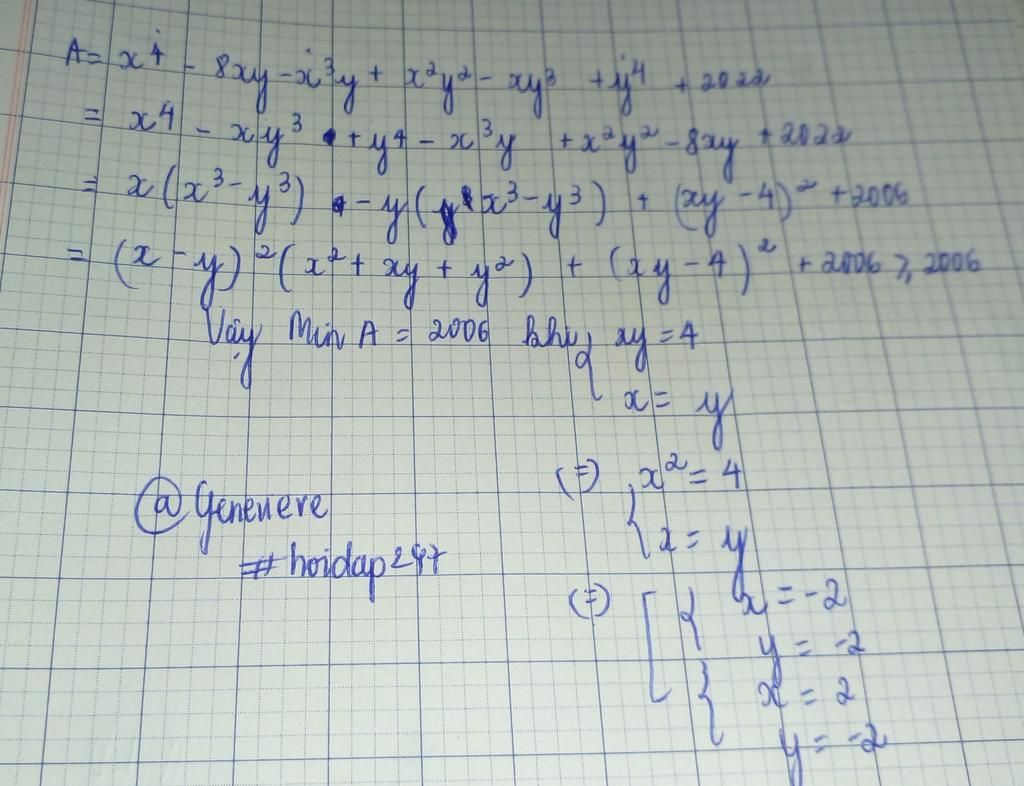 A = x⁴ - 8xy - x³y + x²y² - xy³ + y⁴ + 2022
= x⁴ - xy³ + y⁴ - x³y + x²y² - 8xy + 2022
= x(x³ - y³) - y(x³ - y³) + (xy - 4)² + 2006
= (x - y)²(x² + xy + y²) + (xy - 4)² + 2006 ⩾ 2006
Vậy Min A = 2006 khi { xy = 4
x = y
(=) { x² = 4
x = y
(=) [ { x = -2
y = -2
{ x = 2
y = -2
@Genevere
#hoidap247